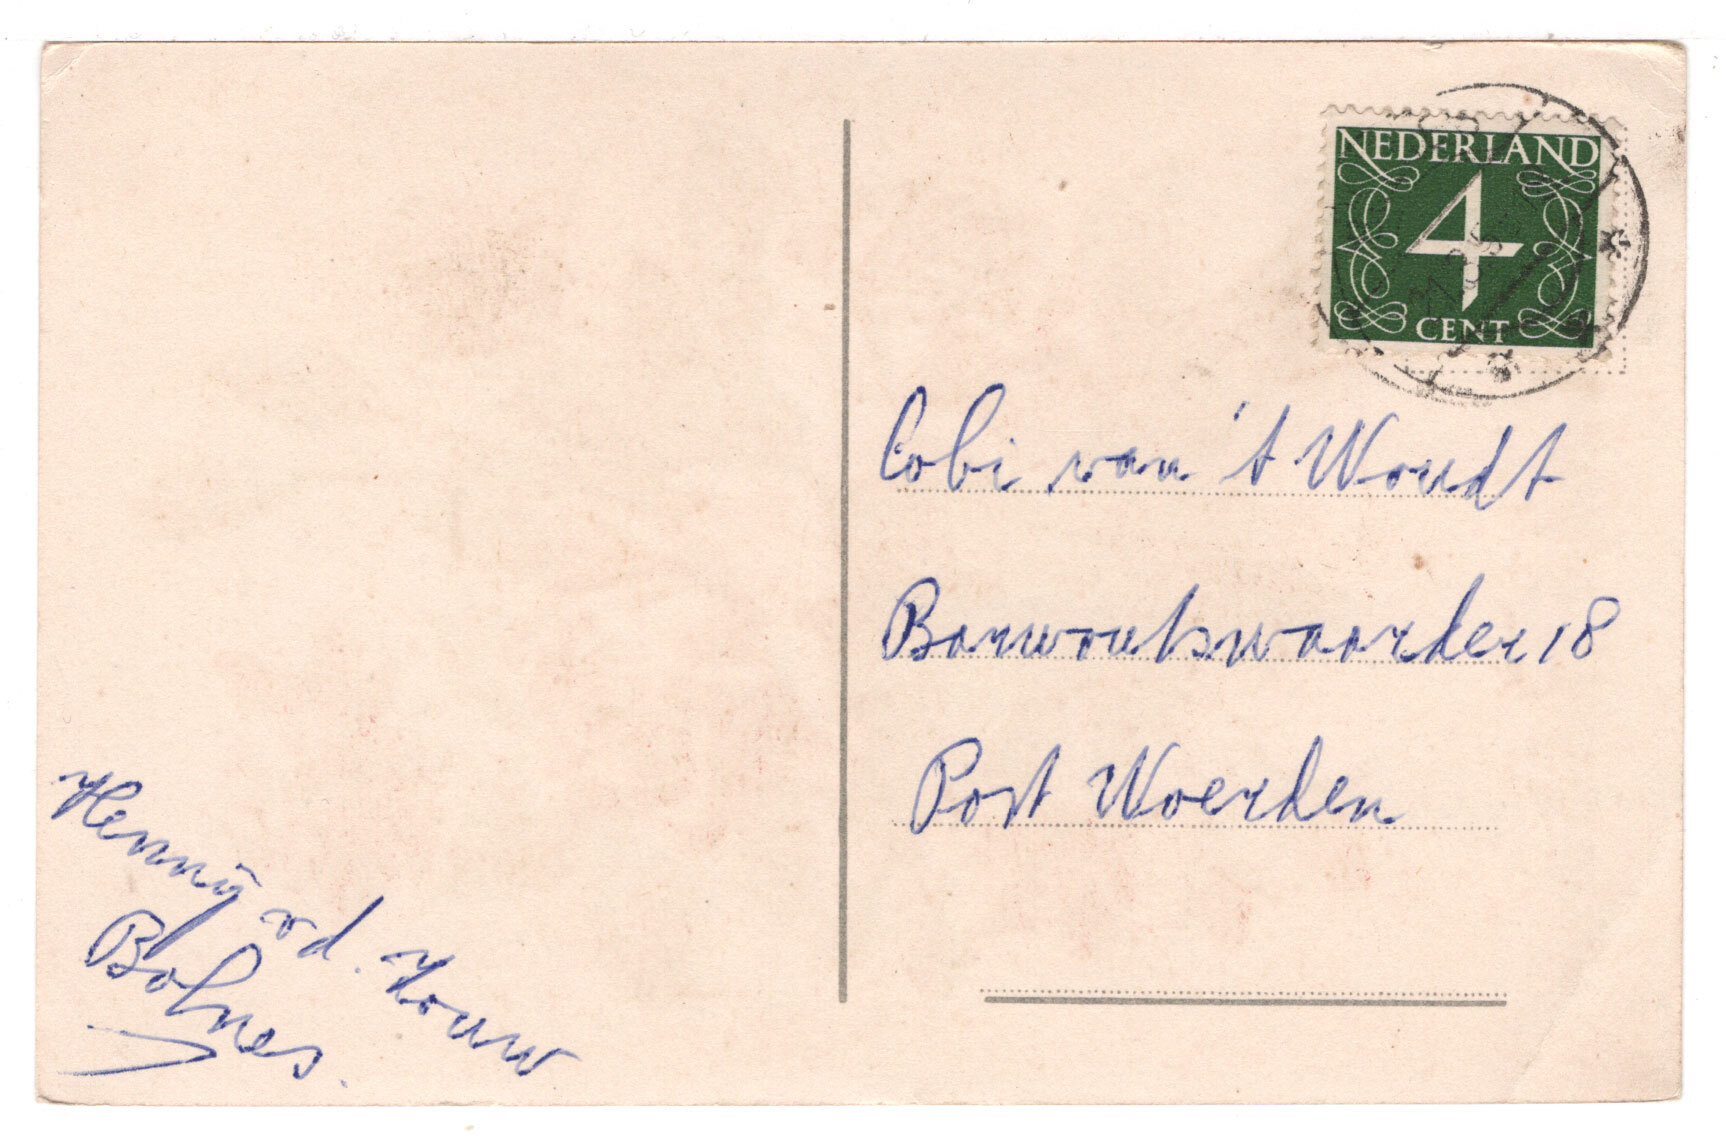 NEDERLAND
4
CENT
Cobi van 't Woudt
Barwoutswaarder 18
Post Woerden
Henny vd. Houw
Bolnes.